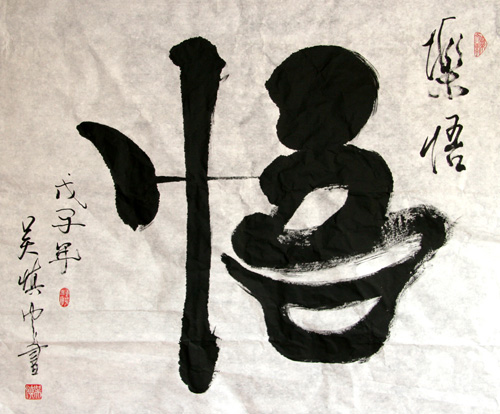 樂悟
悟
戊子年
吴慎中書